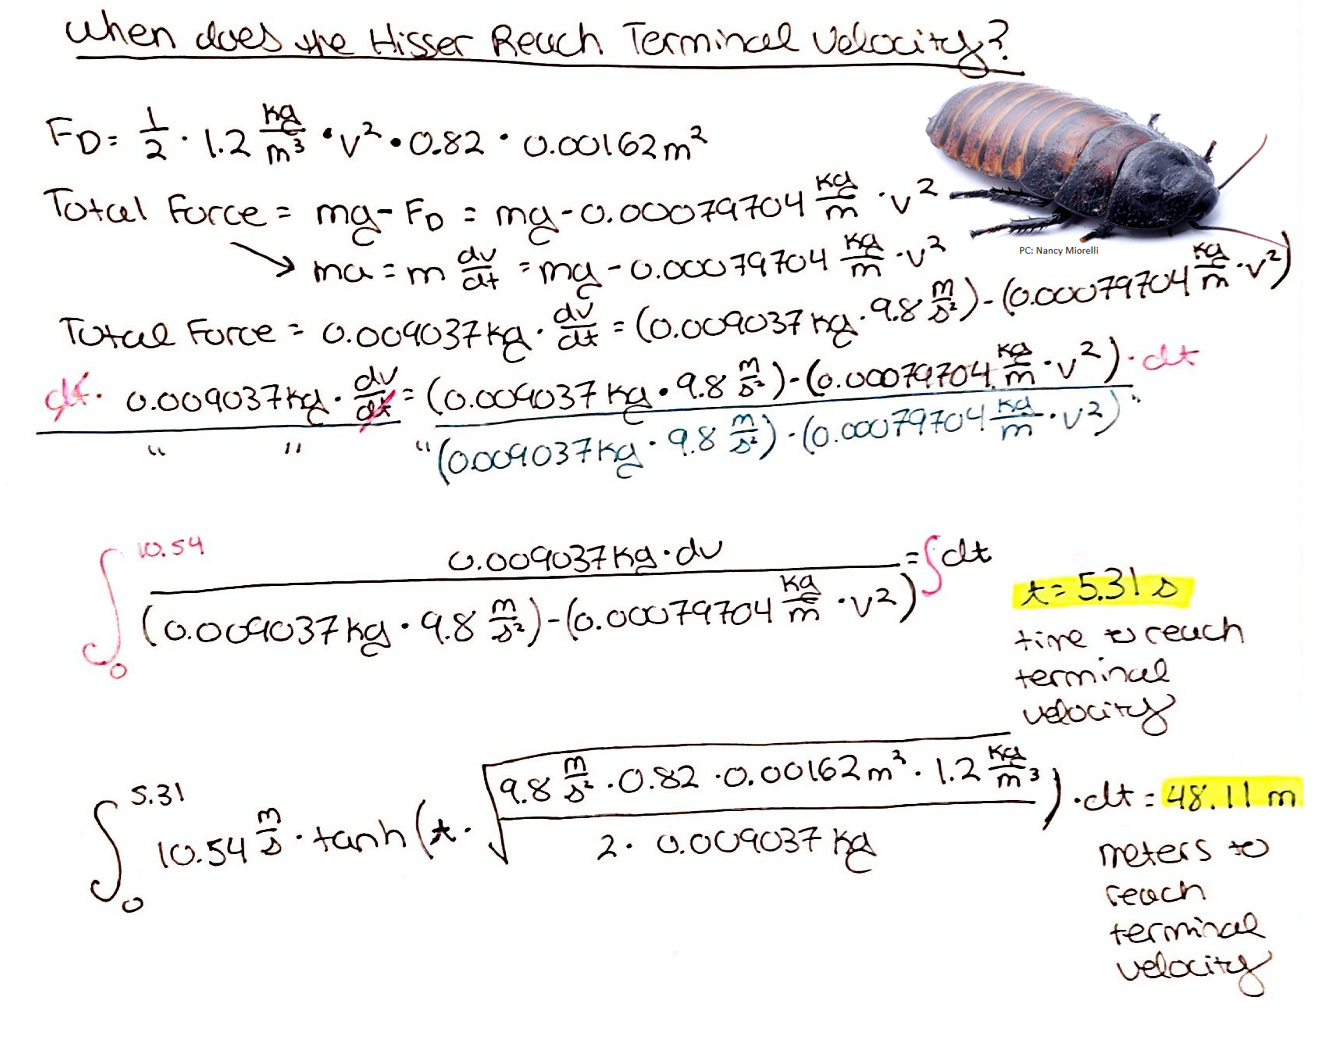 When does the Hisser Reach Terminal Velocity?
F_D = 1/2 · 1.2 kg/m³ · v² · 0.82 · 0.00162 m²
Total Force = mg - F_D = mg - 0.00079704 kg/m · v²
PC: Nancy Miorelli
→ ma = m dv/dt = mg - 0.00079704 kg/m · v²
Total Force = 0.009037 kg · dv/dt = (0.009037 kg · 9.8 m/s²) - (0.00079704 kg/m · v²)
dt · 0.009037 kg · dv/dt = (0.009037 kg · 9.8 m/s²) - (0.00079704 kg/m · v²) · dt
" " "(0.009037 kg · 9.8 m/s²) - (0.00079704 kg/m · v²)"
∫₀^10.54 0.009037 kg · dv / (0.009037 kg · 9.8 m/s²) - (0.00079704 kg/m · v²) = ∫ dt
t = 5.31 s
time to reach
terminal
velocity
∫₀^5.31 10.54 m/s · tanh(t · √(9.8 m/s² · 0.82 · 0.00162 m² · 1.2 kg/m³ / 2 · 0.009037 kg)) · dt = 48.11 m
meters to
reach
terminal
velocity